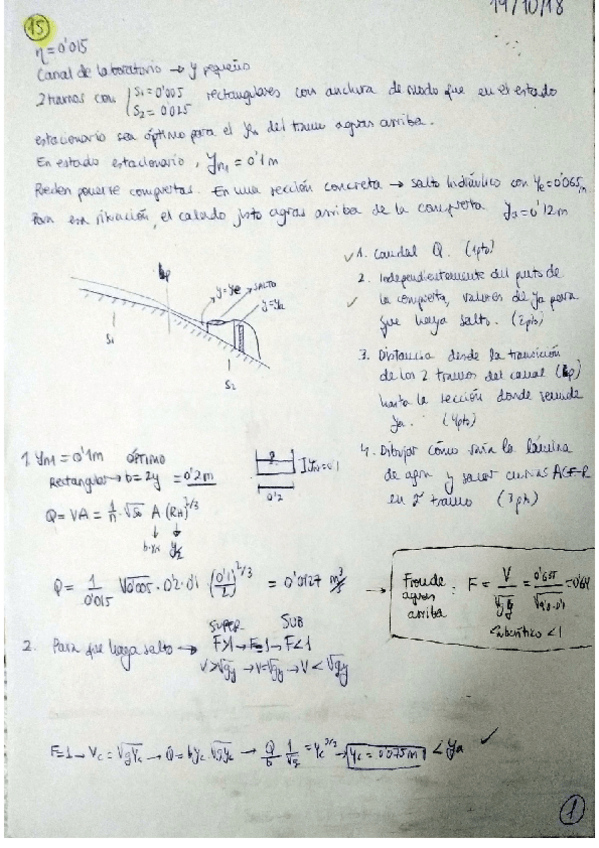 19/10/18
15
η=0'015
Canal de laboratorio → y pequeño
2 tramos con { S₁=0'005 rectangulares con anchura de modo que en el estado
S₂=0'025
estacionario sea óptimo para el yn del tramo aguas arriba.
En estado estacionario, yn₁ = 0'1m
Pueden ponerse compuertas. En una sección concreta → salto hidráulico con ye=0'065m
Para esa situación, el calado justo aguas arriba de la compuerta ya=0'12m
y=ye SALTO
y=ya
S₁
S₂
✓ 1. Caudal Q. (1pto)
2. Independientemente del punto de
✓ la compuerta, valores de ya para
que haya salto. (2pts)
3. Distancia desde la transición
de los 2 tramos del canal (bp)
hasta la sección donde se mide
ya. (4pts)
4. Dibujar cómo varía la lámina
de agua y sacar curvas ACF-R
en 2º tramo (3pts)
1. yn1=0'1m ÓPTIMO
Rectangular → b=2y = 0'2m
0'2
Q = VA = 1/n · √S₀ A (RH)^2/3
b·yn y/2
Q = 1/0'015 √0'005 · 0'2 · 0'1 (0'1/2)^2/3 = 0'0127 m³/s →
Froude : F = V/√gy = 0'635/√9'8·0'1 = 0'64
aguas
arriba
Subcrítico <1
SUPER SUB
2. Para que haya salto → F>1 → F=1 → F<1
V>√gy → V=√gy → V<√gy
F=1 → Vc=√gyc → Q=byc·√gyc → Q/b 1/√g = yc^3/2 → yc=0'075m < ya ✓
1